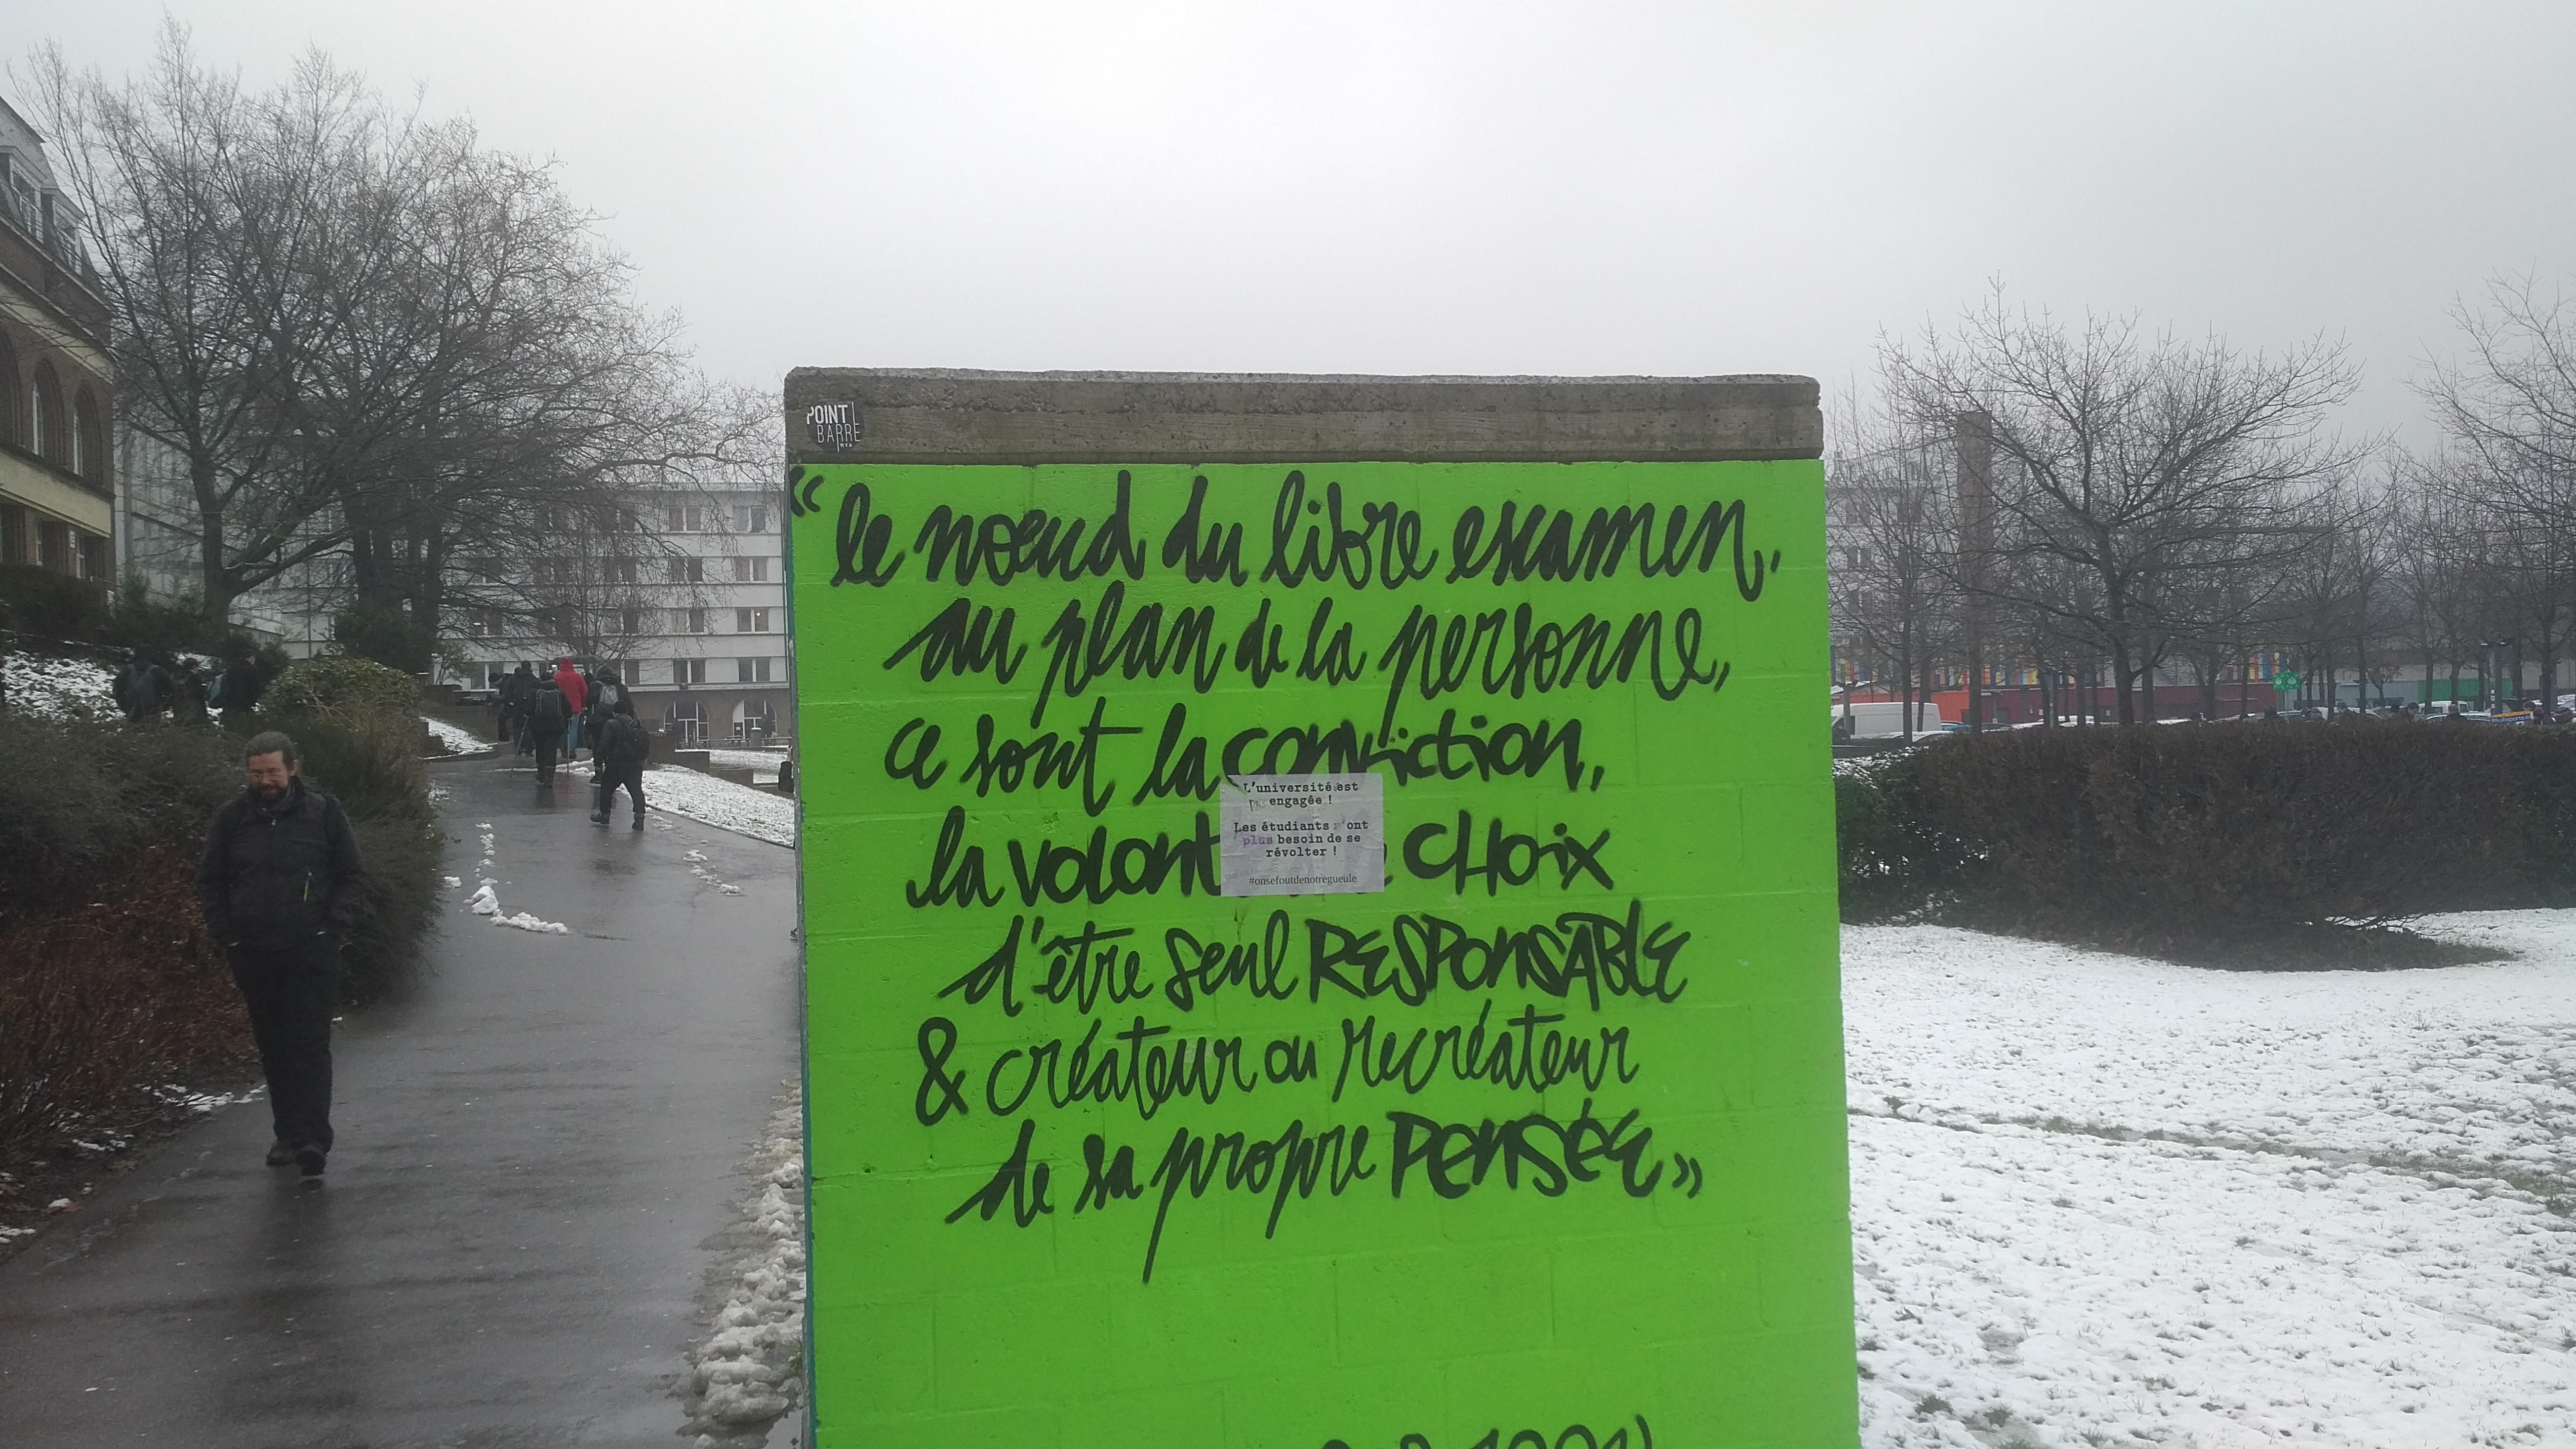 POINT
BARRE
« le noeud du libre examen,
au plan de la personne,
ce sont la conviction,
la volont CHOIX
d'être seul RESPONSABLE
& créateur ou recréateur
de sa propre PENSÉE »
L'université est
engagée !
Les étudiants n'ont
plus besoin de se
révolter !
#onsefoutdenotregueule